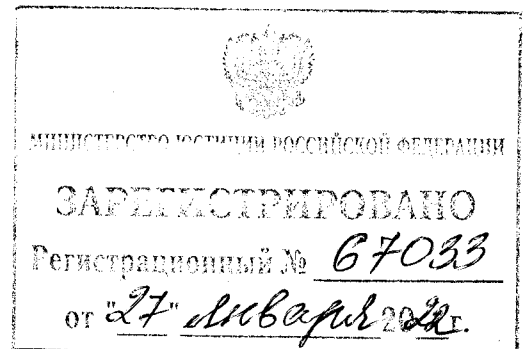 МИНИСТЕРСТВО ЮСТИЦИИ РОССИЙСКОЙ ФЕДЕРАЦИИ
ЗАРЕГИСТРИРОВАНО
Регистрационный № 67033
от "27" января 2022г.